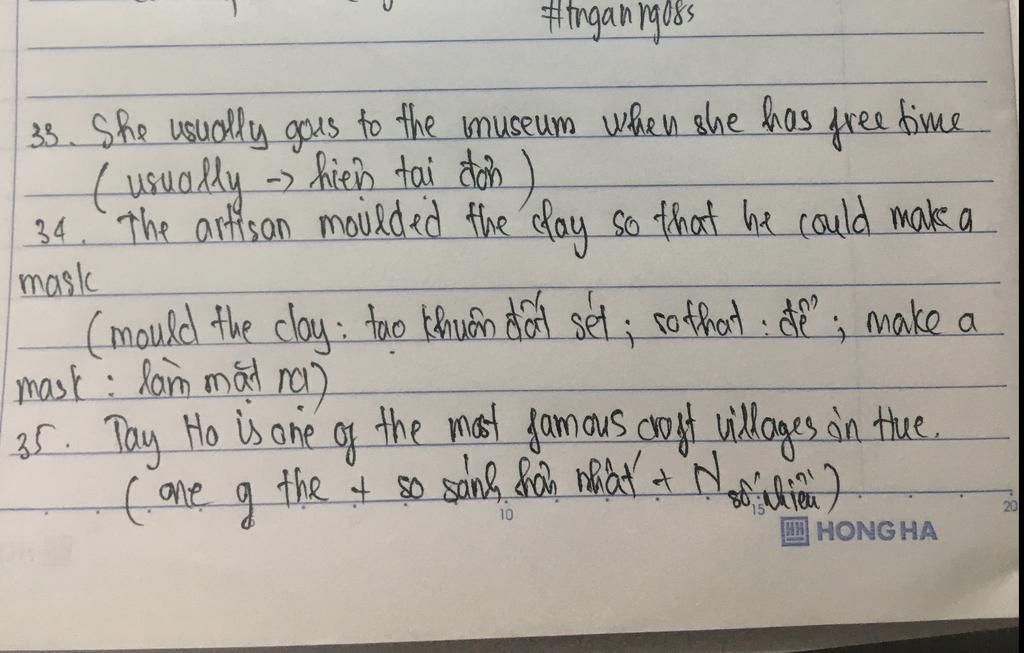 #tnganng08s
33. She usually goes to the museum when she has free time
( usually -> hiện tại đơn )
34. The artisan moulded the clay so that he could make a
mask
(mould the clay : tạo khuôn đất sét ; so that : để ; make a
mask : làm mặt nạ)
35. Tay Ho is one of the most famous craft villages in Hue.
( one of the + so sánh hơn nhất + N số nhiều )
10 15 20
HONG HA